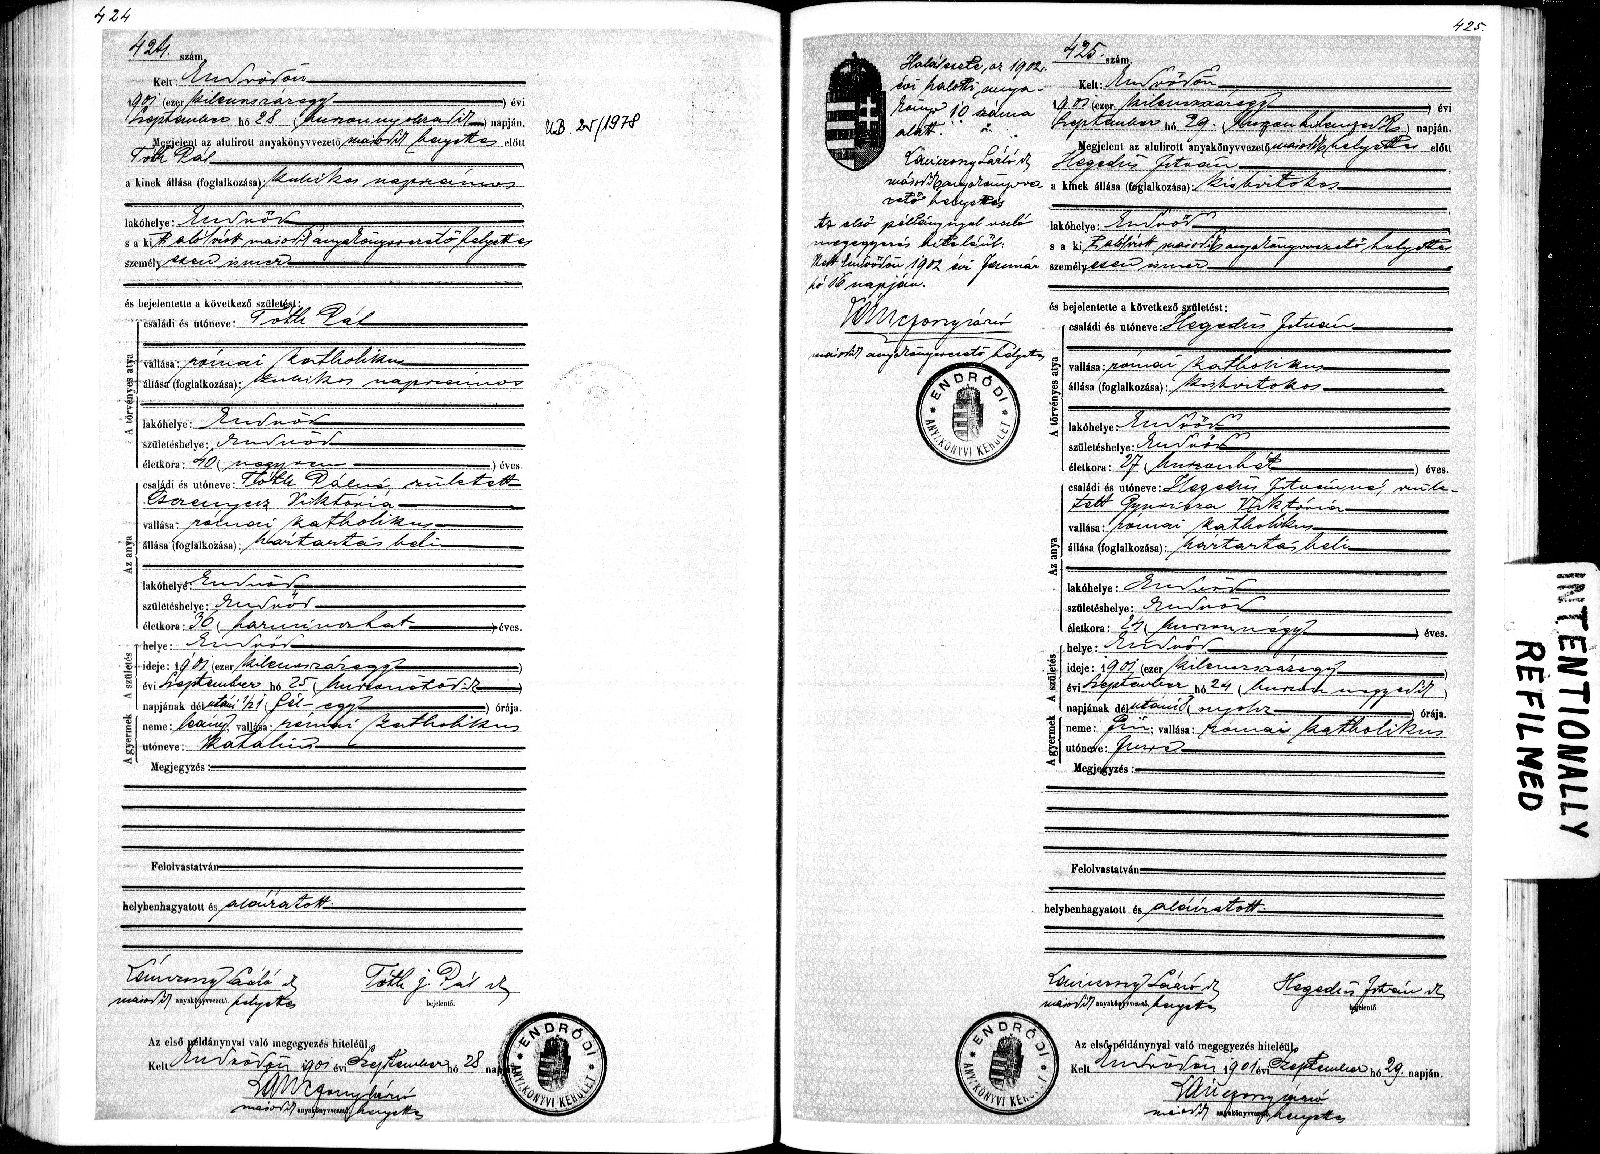 424
424. szám.
Kelt Endrődön
1901 (ezer kilenczszázegy) évi
Szeptember hó 28 (huszonnyolczadik) napján.
Megjelent az alulirott anyakönyvvezető másodh helyettes előtt
Tóth Pál
a kinek állása (foglalkozása): kubikos napszámos
lakóhelye: Endrőd
s a kit alólirott másodh anyakönyvvezető helyettes
személyesen ismer
és bejelentette a következő születést:
A törvényes atya
családi és utóneve: Tóth Pál
vallása: római katholikus
állása (foglalkozása): kubikos napszámos
lakóhelye: Endrőd
születéshelye: Endrőd
életkora: 40 (negyven) éves.
Az anya
családi és utóneve: Tóth Pálné, született
Viktória
vallása: római katholikus
állása (foglalkozása): háztartásbeli
lakóhelye: Endrőd
születéshelye: Endrőd
életkora: 36 (harminczhat) éves.
A születés
helye: Endrőd
ideje: 1901 (ezer kilenczszázegy)
évi Szeptember hó 25 (huszonötödik)
napjának délutáni 1/21 (fél-egy) órája.
A gyermek
neme: leány; vallása: római katholikus
utóneve: Katalin
Megjegyzés:
Felolvastatván
helybenhagyatott és aláíratott.
Lánczony László
másodh anyakönyvvezető helyettes
Tóth j. Pál
bejelentő.
Az első példánynyal való megegyezés hiteléül.
Kelt Endrődön 1901 évi Szeptember hó 28 napján
másodh anyakönyvvezető helyettes
ENDRŐDI
ANYAKÖNYVI KERÜLET
UB 25/1978
425.
Halálesete, az 1902.
évi halotti anya-
könyv 10 száma
alatt.
Lánczony László
másodh anyakönyvve
zető helyettes
Az első példánynyal való
megegyezés hiteléül.
Kelt Endrődön 1902 évi Január
hó 16 napján.
másodh anyakönyvvezető helyettes
ENDRŐDI
ANY.KÖNYVI KERÜLET
425. szám.
Kelt: Endrődön
1901 (ezer kilenczszázegy) évi
Szeptember hó 29. (huszonkilenczedik) napján.
Megjelent az alulirott anyakönyvvezető másodh helyettes előtt
Hegedűs István
a kinek állása (foglalkozása): kisbirtokos
lakóhelye: Endrőd
s a kit alólirott másodh anyakönyvvezető helyettes
személyesen ismer
és bejelentette a következő születést:
A törvényes atya
családi és utóneve: Hegedűs István
vallása: római katholikus
állása (foglalkozása): kisbirtokos
lakóhelye: Endrőd
születéshelye: Endrőd
életkora: 27 (huszonhét) éves.
Az anya
családi és utóneve: Hegedűs Istvánné, szüle-
tett Viktória
vallása: római katholikus
állása (foglalkozása): háztartásbeli
lakóhelye: Endrőd
születéshelye: Endrőd
életkora: 24 (huszonnégy) éves.
A születés
helye: Endrőd
ideje: 1901 (ezer kilenczszázegy)
évi Szeptember hó 24 (huszonnegyedik)
napjának délutáni nyolcz órája.
A gyermek
neme: fiú; vallása: római katholikus
utóneve: Imre
Megjegyzés:
Felolvastatván
helybenhagyatott és aláíratott.
Lánczony László
másodh anyakönyvvezető helyettes
Hegedűs István
bejelentő
Az első példánynyal való megegyezés hiteléül.
Kelt Endrődön 1901 évi Szeptember hó 29. napján.
másodh anyakönyvvezető helyettes
ENDRŐDI
ANY.KÖNYVI KERÜLET
INTENTIONALLY
REFILMED